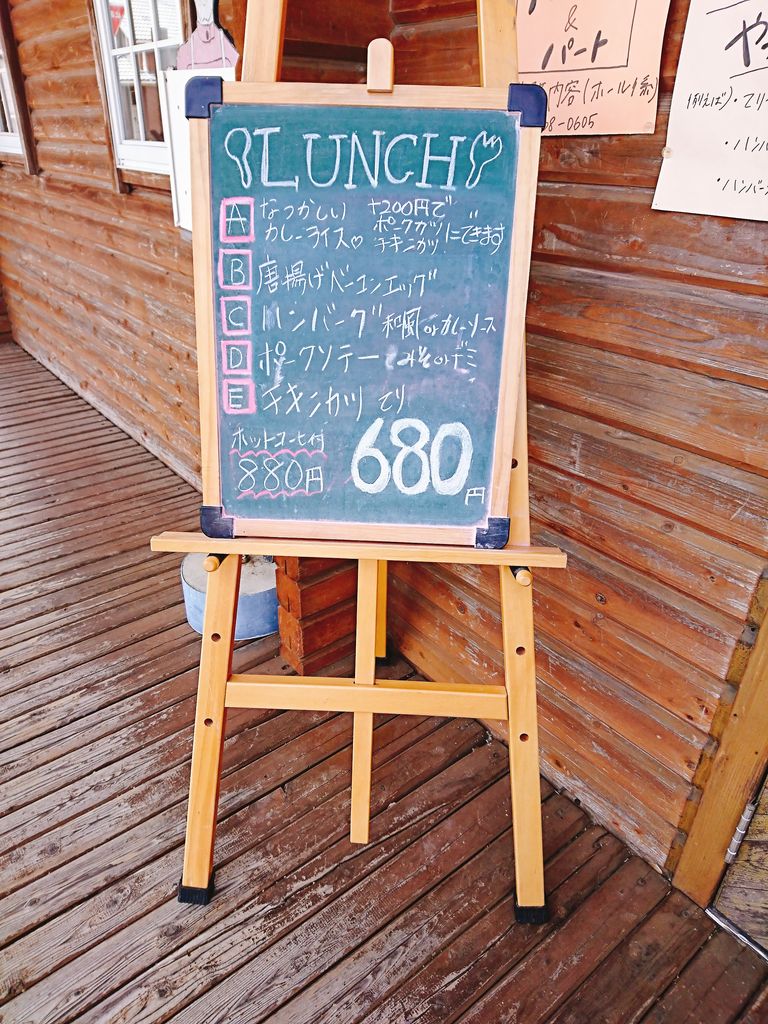 LUNCH
A なつかしい カレーライス♡ +200円で ポークカツ チキンカツ にできます
B 唐揚げベーコンエッグ
C ハンバーグ 和風orカレーソース
D ポークソテー みそorデミ
E チキンカツ てり
ホットコーヒー付
880円
680円
&
パート
内容(ホール係)
8-0605
や
例えば)・てり
・ハンバ
・ハンバー